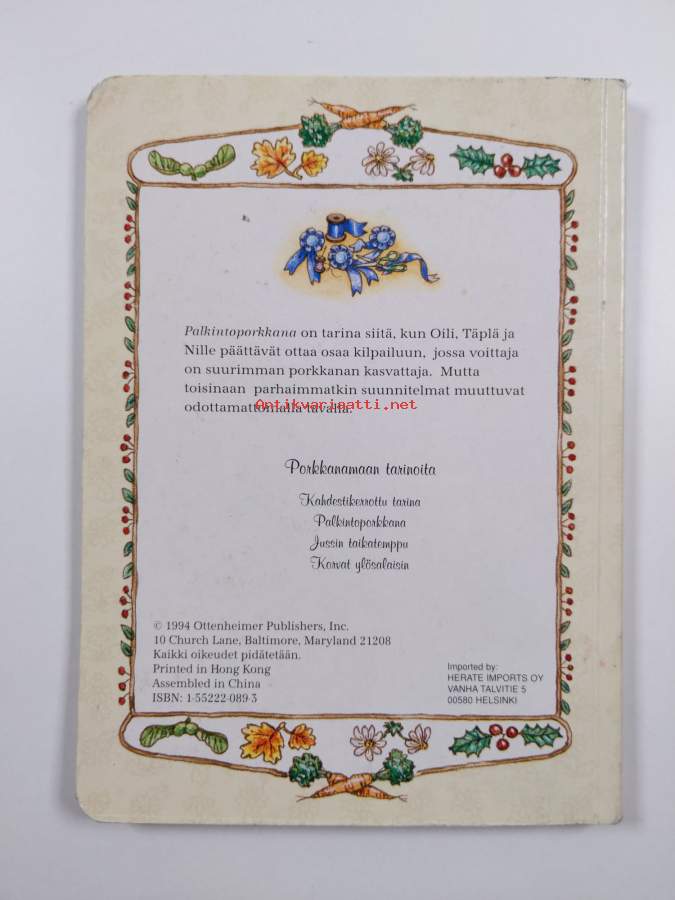 Palkintoporkkana on tarina siitä, kun Oili, Täplä ja
Nille päättävät ottaa osaa kilpailuun, jossa voittaja
on suurimman porkkanan kasvattaja. Mutta
toisinaan parhaimmatkin suunnitelmat muuttuvat
Antikvariaatti.net
odottamattomalla tavalla.
Porkkanamaan tarinoita
Kahdestikerrottu tarina
Palkintoporkkana
Jussin taikatemppu
Korvat ylösalaisin
© 1994 Ottenheimer Publishers, Inc.
10 Church Lane, Baltimore, Maryland 21208
Kaikki oikeudet pidätetään.
Printed in Hong Kong
Assembled in China
ISBN: 1-55222-089-3
Imported by:
HERATE IMPORTS OY
VANHA TALVITIE 5
00580 HELSINKI